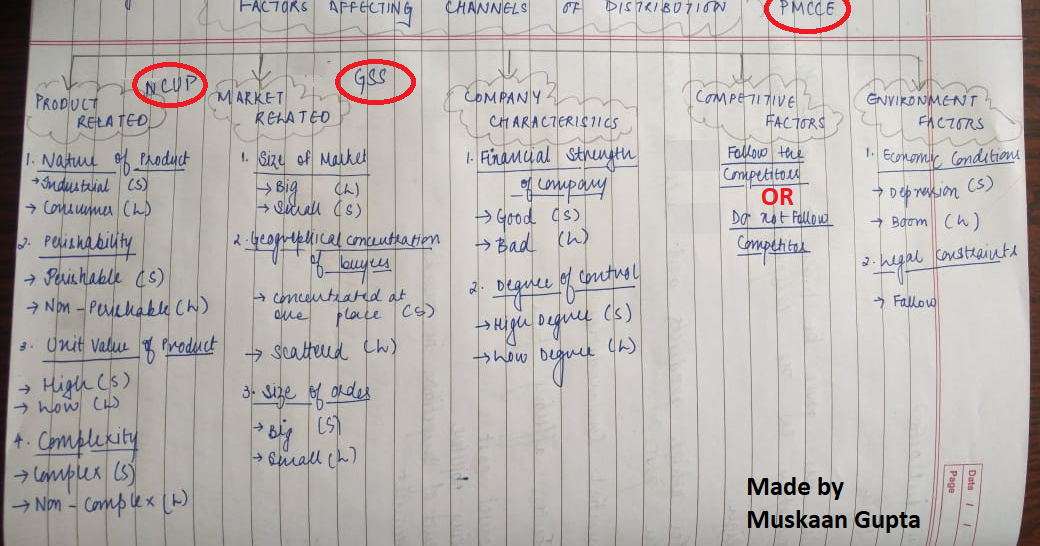 FACTORS AFFECTING CHANNELS OF DISTRIBUTION PMCCE
NCUP
PRODUCT
RELATED
1. Nature of Product
→ Industrial (S)
→ Consumer (L)
2. Perishability
→ Perishable (S)
→ Non-Perishable (L)
3. Unit Value of Product
→ High (S)
→ Low (L)
4. Complexity
→ Complex (S)
→ Non-Complex (L)
GSS
MARKET
RELATED
1. Size of Market
→ Big (L)
→ Small (S)
2. Geographical concentration
of buyers
→ concentrated at
one place (S)
→ Scattered (L)
3. Size of order
→ Big (S)
→ Small (L)
COMPANY
CHARACTERISTICS
1. Financial Strength
of company
→ Good (S)
→ Bad (L)
2. Degree of control
→ High Degree (S)
→ Low Degree (L)
COMPETITIVE
FACTORS
Follow the
Competitors
OR
Do not Follow
Competitor
ENVIRONMENT
FACTORS
1. Economic Conditions
→ Depression (S)
→ Boom (L)
2. Legal constraints
→ Follow
Data / /
Page
Made by
Muskaan Gupta